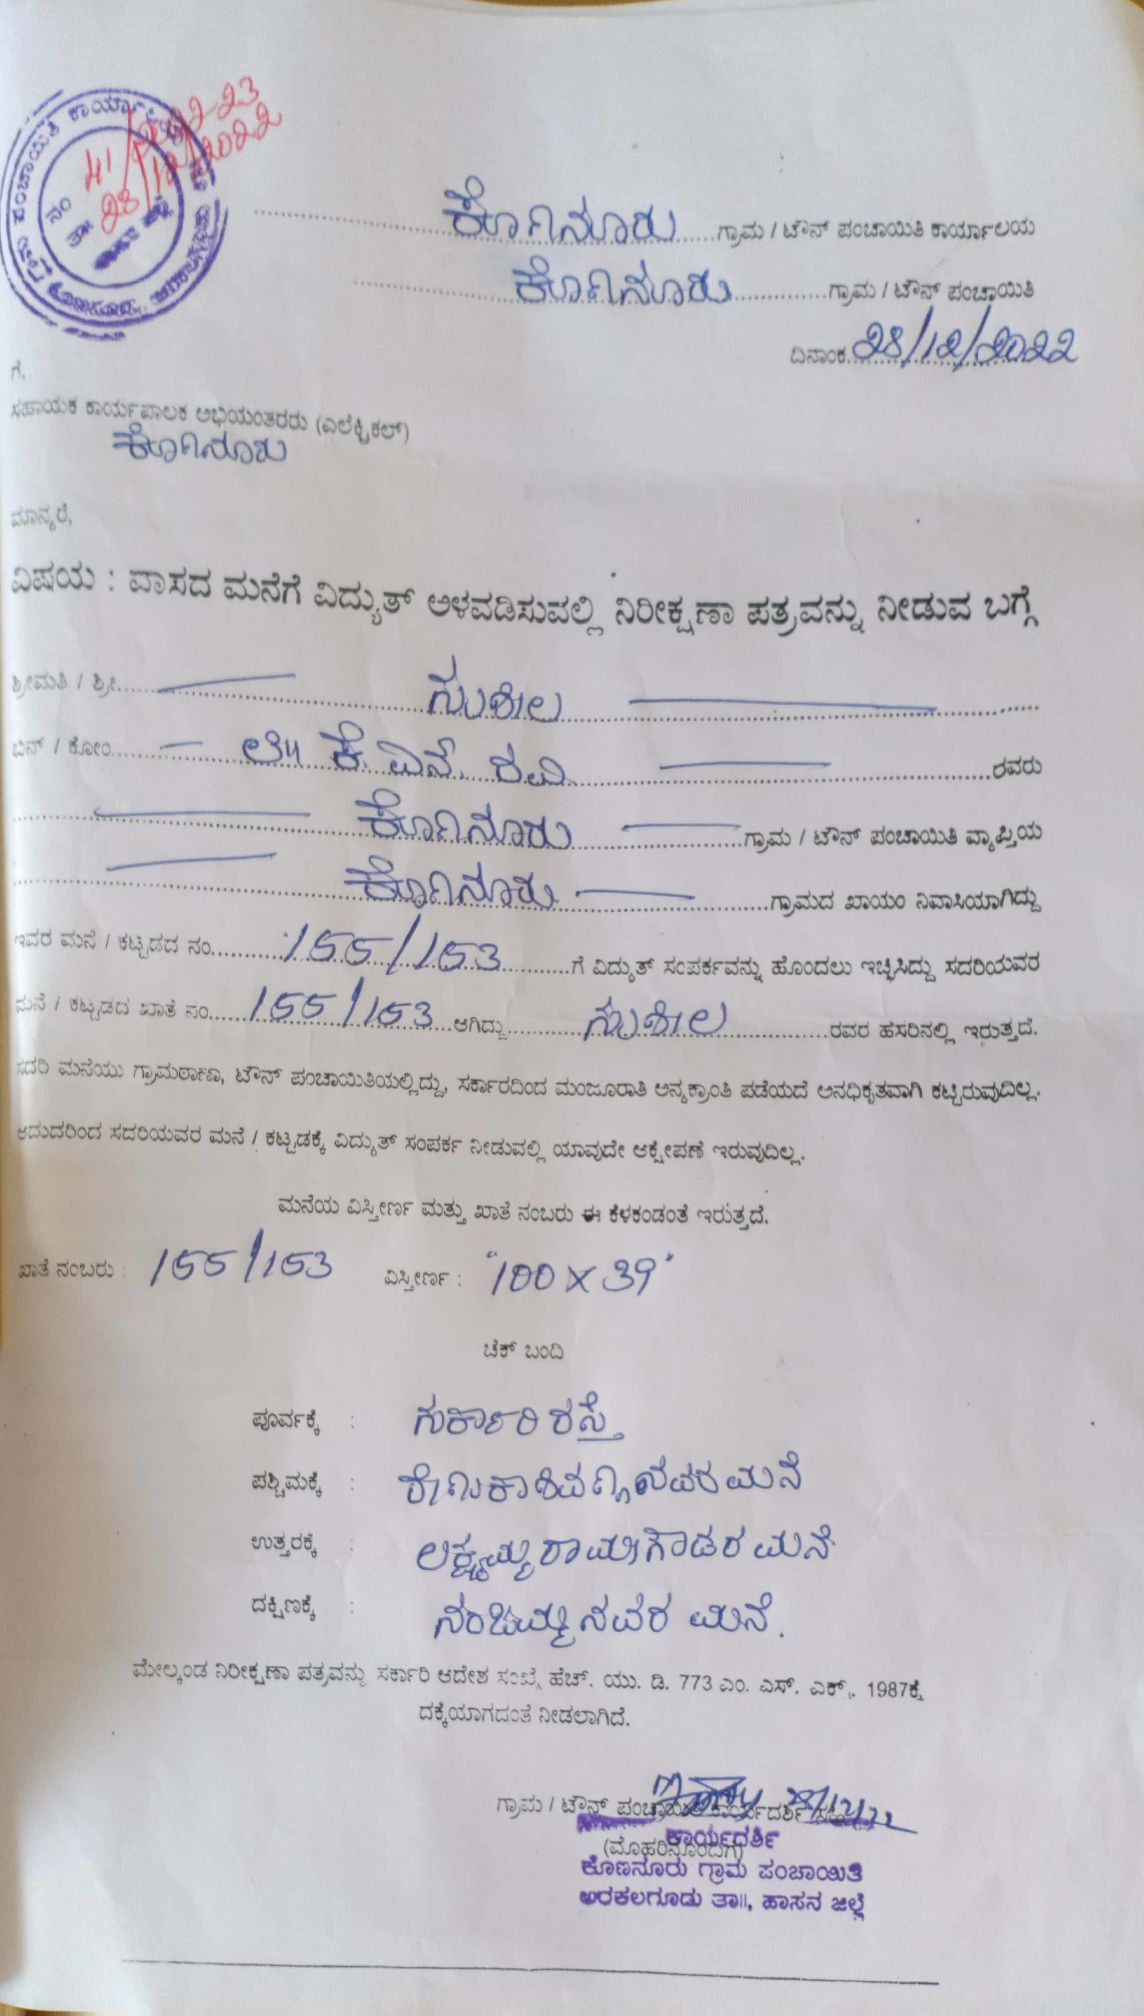 ಪಂಚಾಯಿತಿ ಕಾರ್ಯಾ
ನಂ 41/2022-23
ತಾ 28/12/2022
ಕೊಣನೂರು ಗ್ರಾಮ / ಟೌನ್ ಪಂಚಾಯಿತಿ ಕಾರ್ಯಾಲಯ
ಕೊಣನೂರು ಗ್ರಾಮ / ಟೌನ್ ಪಂಚಾಯಿತಿ
ದಿನಾಂಕ 28/12/2022
ಗೆ,
ಸಹಾಯಕ ಕಾರ್ಯಪಾಲಕ ಅಭಿಯಂತರರು (ಎಲೆಕ್ಟ್ರಿಕಲ್)
ಕೊಣನೂರು
ಮಾನ್ಯರೆ,
ವಿಷಯ : ವಾಸದ ಮನೆಗೆ ವಿದ್ಯುತ್ ಅಳವಡಿಸುವಲ್ಲಿ ನಿರೀಕ್ಷಣಾ ಪತ್ರವನ್ನು ನೀಡುವ ಬಗ್ಗೆ
ಶ್ರೀಮತಿ / ಶ್ರೀ ಸುಶೀಲ
ಬಿನ್ / ಕೋಂ ಲೇ॥ ಕೆ ಎನ್ ರವಿ ರವರು
ಕೊಣನೂರು ಗ್ರಾಮ / ಟೌನ್ ಪಂಚಾಯಿತಿ ವ್ಯಾಪ್ತಿಯ
ಕೊಣನೂರು ಗ್ರಾಮದ ಖಾಯಂ ನಿವಾಸಿಯಾಗಿದ್ದು
ಇವರ ಮನೆ / ಕಟ್ಟಡದ ನಂ 155/153 ಗೆ ವಿದ್ಯುತ್ ಸಂಪರ್ಕವನ್ನು ಹೊಂದಲು ಇಚ್ಛಿಸಿದ್ದು ಸದರಿಯವರ
ಮನೆ / ಕಟ್ಟಡದ ಖಾತೆ ನಂ 155/153 ಆಗಿದ್ದು ಸುಶೀಲ ರವರ ಹಸರಿನಲ್ಲಿ ಇರುತ್ತದೆ.
ಸದರಿ ಮನೆಯು ಗ್ರಾಮಠಾಣಾ, ಟೌನ್ ಪಂಚಾಯಿತಿಯಲ್ಲಿದ್ದು, ಸರ್ಕಾರದಿಂದ ಮಂಜೂರಾತಿ ಅನ್ಯಕ್ರಾಂತಿ ಪಡೆಯದೆ ಅನಧಿಕೃತವಾಗಿ ಕಟ್ಟಿರುವುದಿಲ್ಲ.
ಆದುದರಿಂದ ಸದರಿಯವರ ಮನೆ / ಕಟ್ಟಡಕ್ಕೆ ವಿದ್ಯುತ್ ಸಂಪರ್ಕ ನೀಡುವಲ್ಲಿ ಯಾವುದೇ ಆಕ್ಷೇಪಣೆ ಇರುವುದಿಲ್ಲ.
ಮನೆಯ ವಿಸ್ತೀರ್ಣ ಮತ್ತು ಖಾತೆ ನಂಬರು ಈ ಕೆಳಕಂಡಂತೆ ಇರುತ್ತದೆ.
ಖಾತೆ ನಂಬರು : 155/153 ವಿಸ್ತೀರ್ಣ : "100 x 39'
ಚೆಕ್ ಬಂದಿ
ಪೂರ್ವಕ್ಕೆ : ಸರ್ಕಾರಿ ರಸ್ತೆ
ಪಶ್ಚಿಮಕ್ಕೆ : ರೇಣುಕಾಶಿವಣ್ಣನವರ ಮನೆ
ಉತ್ತರಕ್ಕೆ : ಲಕ್ಷ್ಮಮ್ಮರಾಮೇಗೌಡರ ಮನೆ
ದಕ್ಷಿಣಕ್ಕೆ : ನಂಜಮ್ಮನವರ ಮನೆ.
ಮೇಲ್ಕಂಡ ನಿರೀಕ್ಷಣಾ ಪತ್ರವನ್ನು ಸರ್ಕಾರಿ ಆದೇಶ ಸಂಖ್ಯೆ ಹೆಚ್. ಯು. ಡಿ. 773 ಎಂ. ಎಸ್. ಎಕ್ಸ್. 1987ಕ್ಕೆ
ದಕ್ಕೆಯಾಗದಂತೆ ನೀಡಲಾಗಿದೆ.
28/12/22
ಗ್ರಾಮ / ಟೌನ್ ಪಂಚಾಯಿತಿ ಕಾರ್ಯದರ್ಶಿ ಸಹಿ
(ಮೊಹರಿನೊಂದಿಗೆ)
ಕಾರ್ಯದರ್ಶಿ
ಕೊಣನೂರು ಗ್ರಾಮ ಪಂಚಾಯಿತಿ
ಅರಕಲಗೂಡು ತಾ॥, ಹಾಸನ ಜಿಲ್ಲೆ